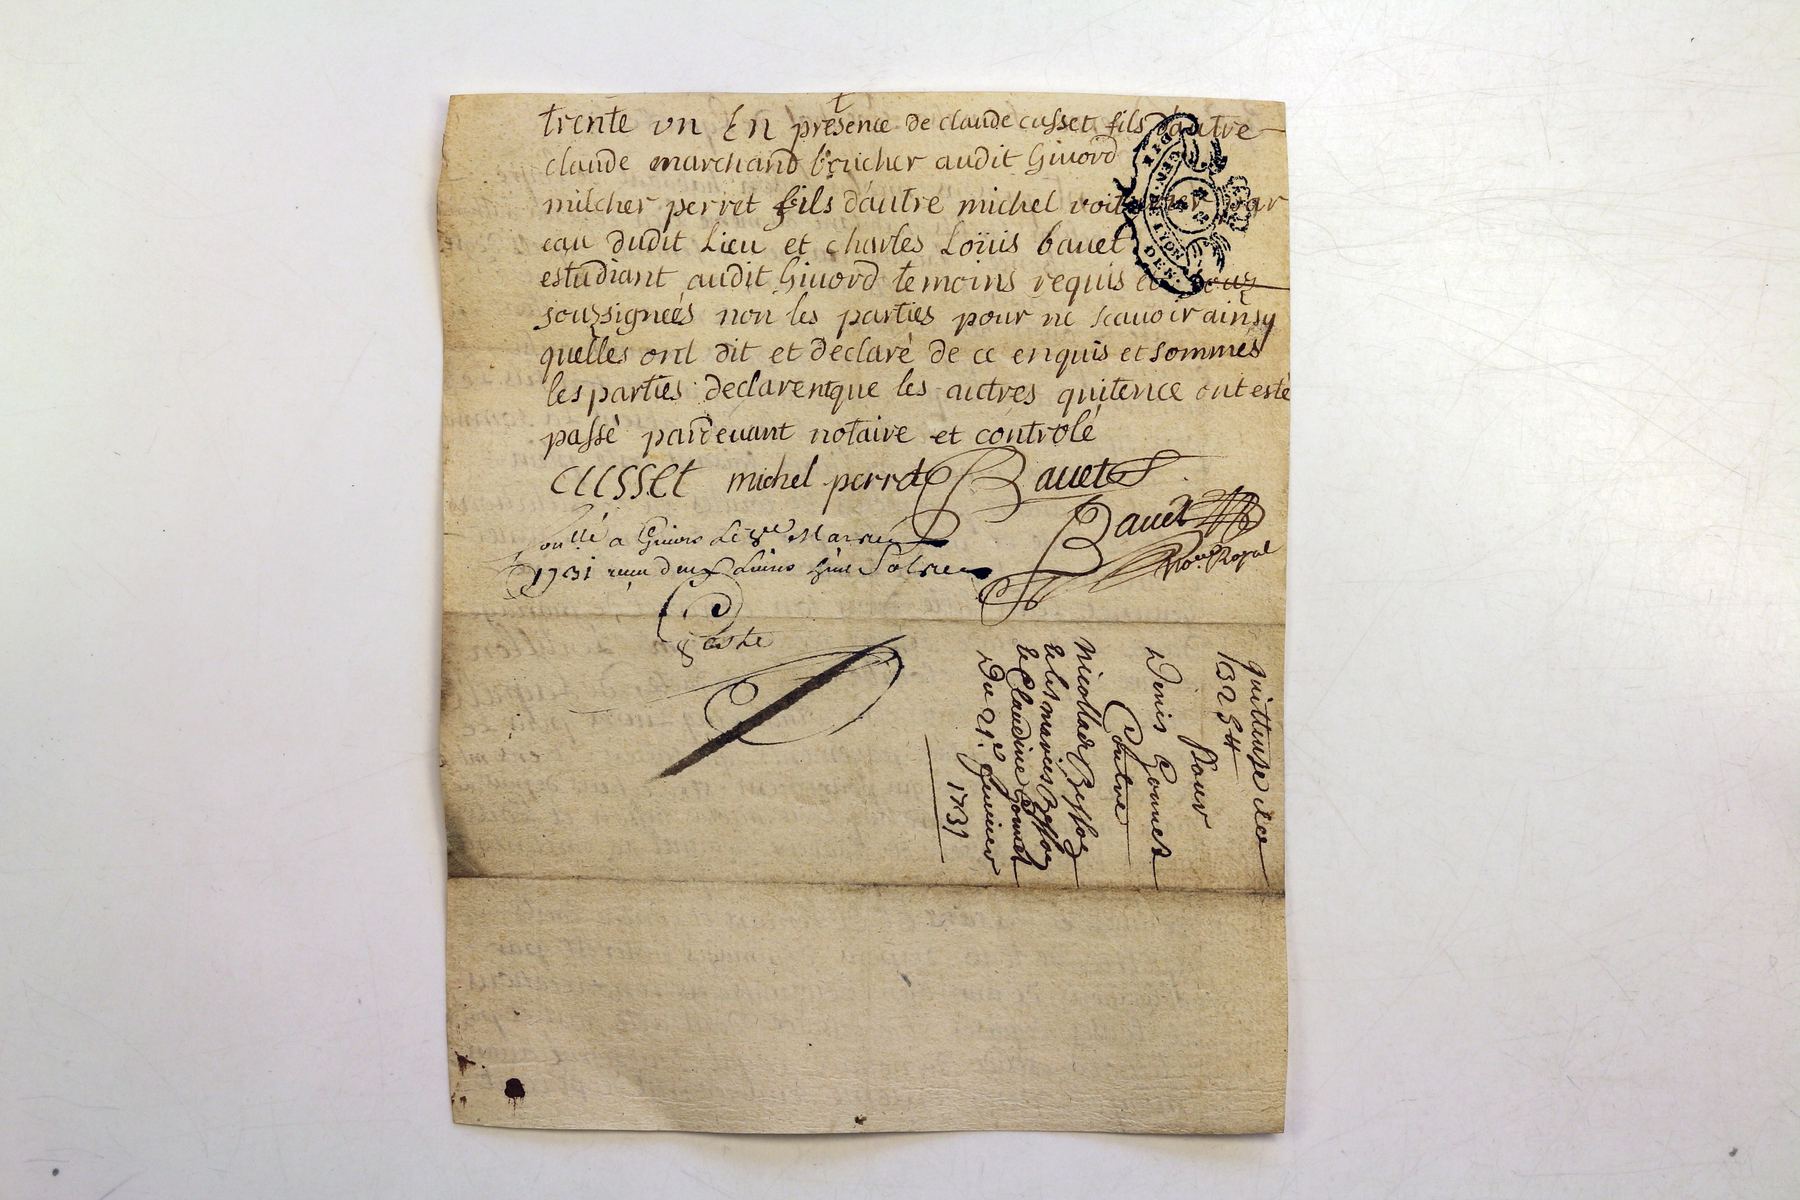 trente un En presence de claude cusset fils d'autre
claude marchand boucher audit Givord
milcher perret fils d'autre michel voiturier par
eau dudit Lieu et charles Loüis bauet
estudiant audit Givord temoins requis et
souzsigneés non les parties pour ne scauoir ainsy
quelles ont dit et declaré de ce enquis et sommes
les parties declarent que les autres quitence ont esté
passé pardeuant notaire et controlé
CUSSET michel perret Bauet
Bauet
No.re Royal
a Givors Le 8e Mars
1731 reçu
quittense de
132 5
Pour
Denis Gonnet
Contre
Nicollas Besson
& Claudine Gonnet
Du 21e Jenvier
1731
GEN. DE LYON